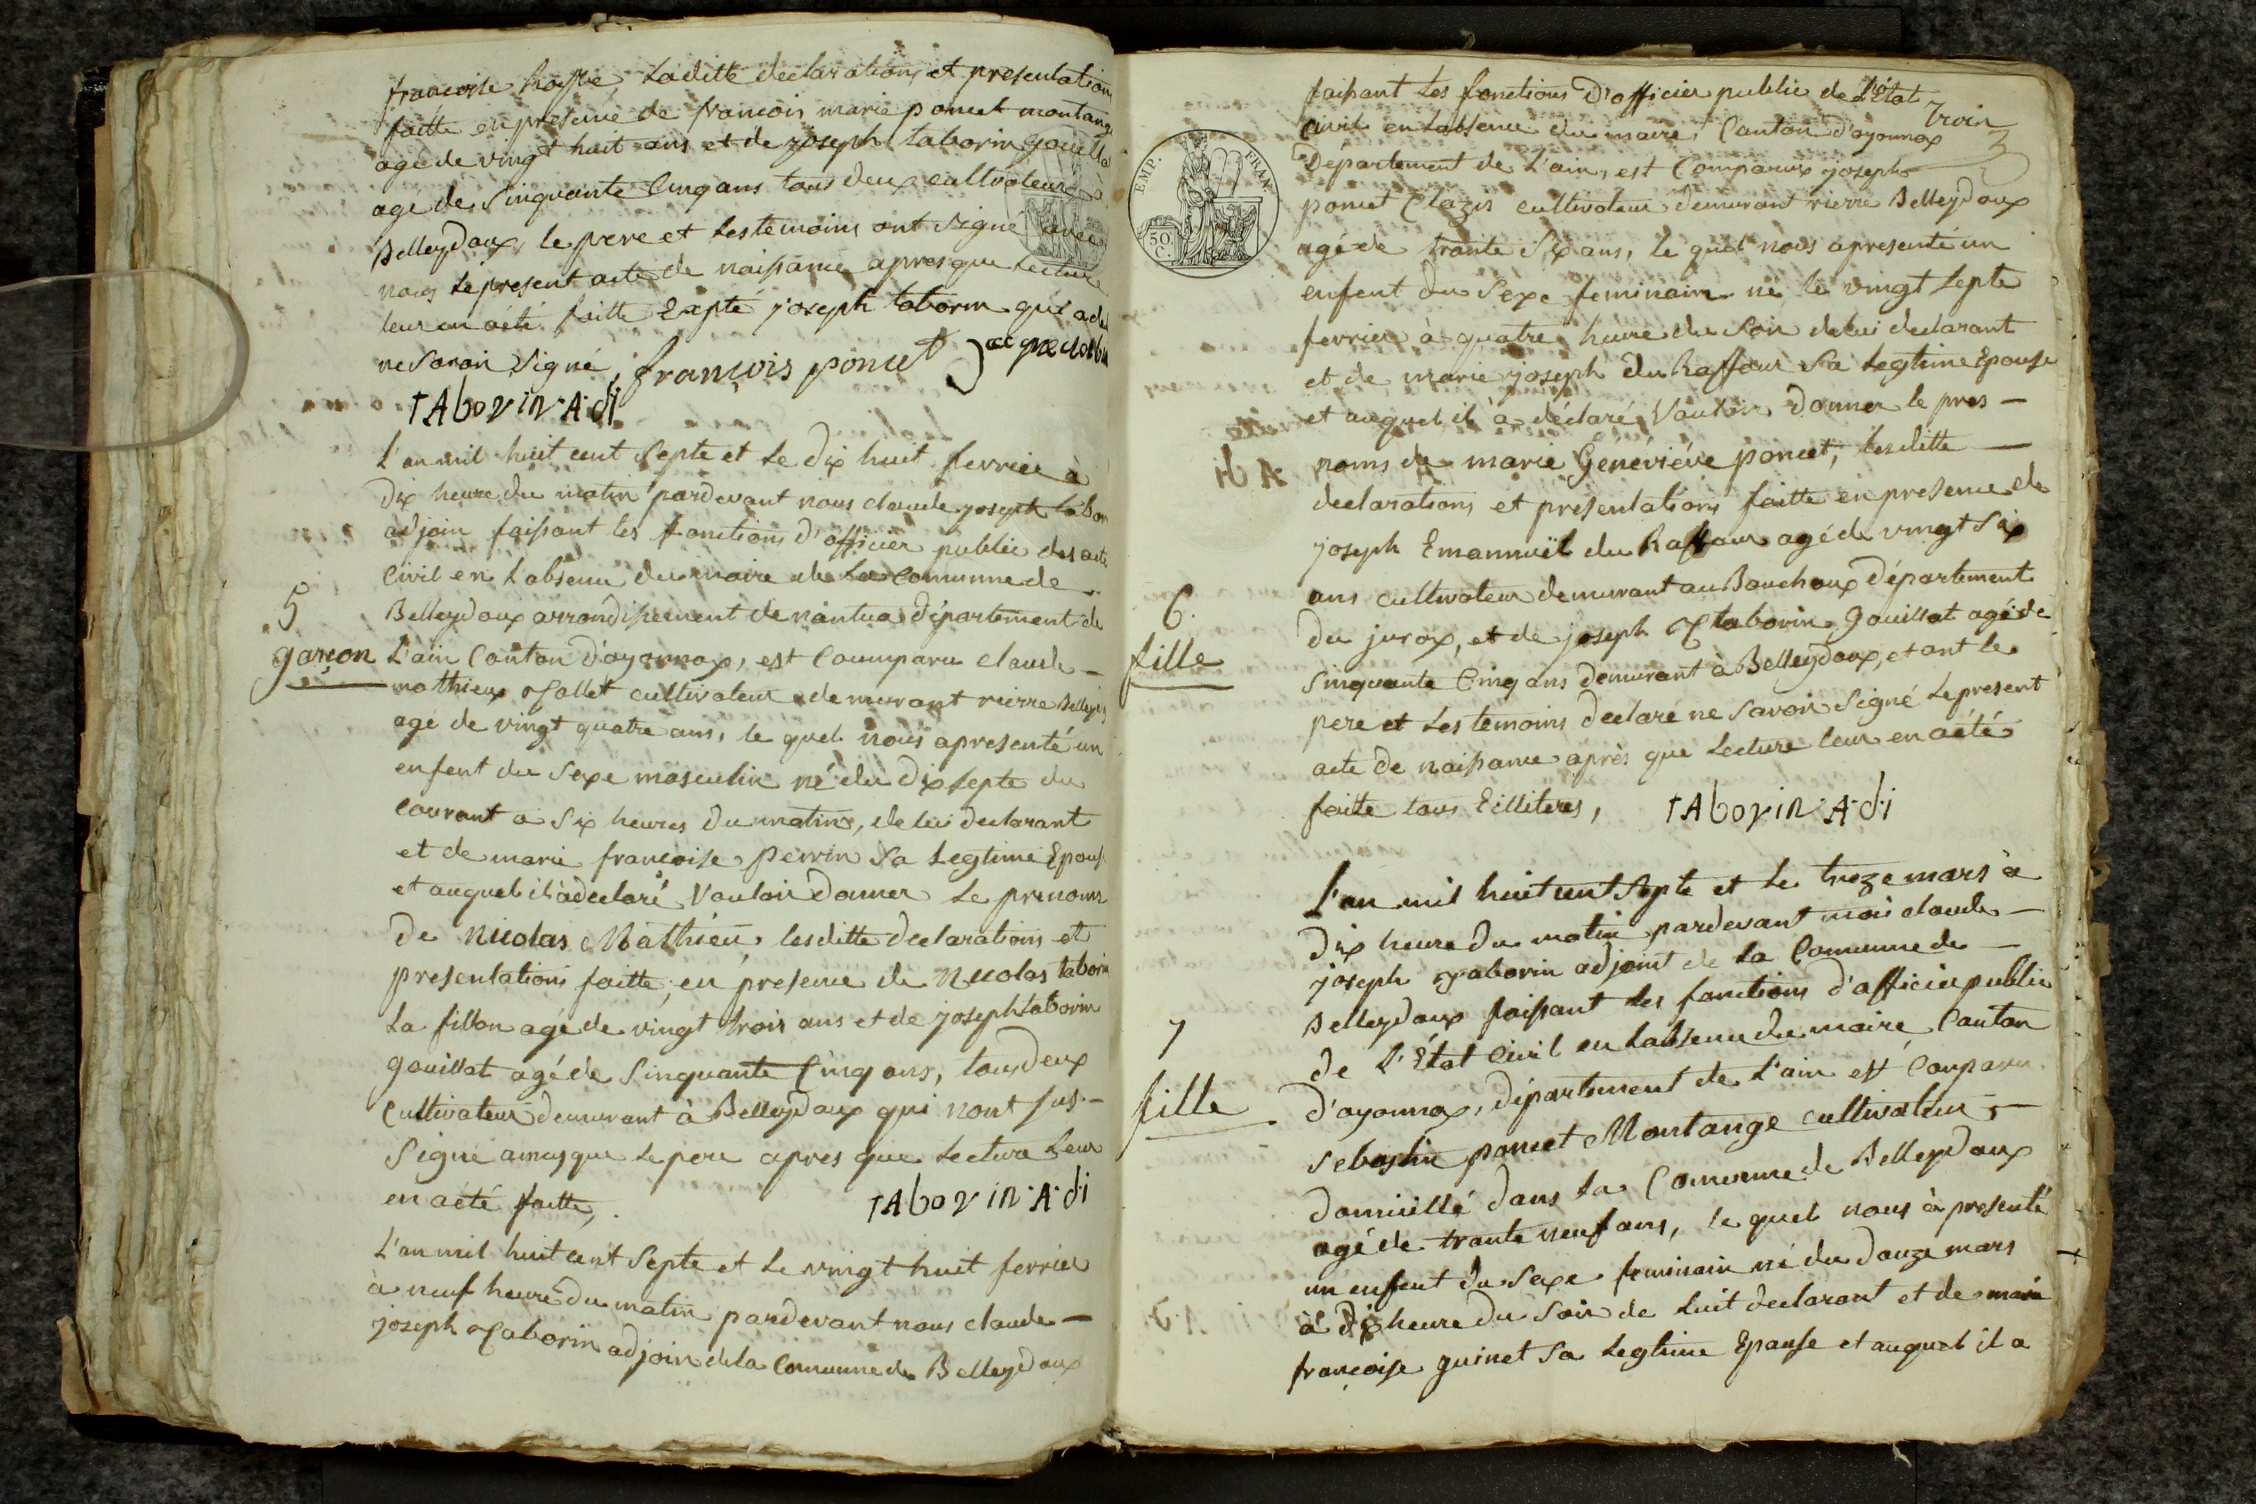 francoise laditte declarations et presentations
faitte en presence de francois marie poncet montange
agé de vingt huit ans et de joseph taborin gouillat
age de Sinquante Cinq ans tous deux cultivateur à
Belleydoux, le pere et les temoins ont signé avec
nous le present acte de naissance apres que lecture
leur en a été faitte Exapté joseph taborin qui a de
ne Savoir Signé, françois poncet
TAborin A di
L'an mil huit cent Septe et le dix huit fevrier à
Dix heure du matin pardevant nous claude joseph tabor
adjoin faissant les fonctions d'officier public des acte
Civil en l'absence du maire de la Comunne de
5 Belleydoux arrondissement de nantua département de
garçon L'ain Canton d'oyonnax, est Coumparu claude –
mathieux Gallet cultivateur demurant rierre Belleyd
agé de vingt quatre ans, le quel nous apresenté un
enfent du Sexe masculin né du dix septe du
courant a Six heures du matin, de lui declarant
et de marie francoise perrin Sa Legtime Epouse
et auquel il a declaré Vouloir donner le prenoms
de Nicolas Mathieu, lesditte declarations et
presentations faitte, en presence de Nicolas tabori
La fillon agé de vingt trois ans et de joseph taborin
gouillat agé de Sinquante Cinq ans, tous deux
Cultivateur demurant à Belleydoux qui nont sus –
Signé amsy que le pere apres que lecture Leur
en a été faitte, TAborin A di
L'an mil huit cent Septe et le vingt huit fevrier
à neuf heure du matin pardevant nous claude –
joseph Taborin adjoin de la Comunne de Belleydoux
faissant les fonctions d'officier public de l'Etat
Trois
3
civil en labsence du maire, Canton d'oyonnax
Département de L'ain, est Comparux joseph
EMP. FRAN.
50 C.
poncet Clazis cultivateur demurant rierre Belleydoux
agé de trante Six ans, le quel nous apresenté un
enfent du Sexe feminain né le vingt Septe
fevrier à quatre heure du Soir de lui declarant
et de marie joseph du Raffour Sa Legtime Epouse
et auquel il à déclaré Vouloir donner le pres –
noms de marie Généviéve poncet, lesditte –
declarations et presentations faitte en presence de
joseph Emannuël du Raffour agé de vingt Six
ans cultivateur demurant au Bouchoux Département
6. du jurax, et de joseph Taborin Gouillat agé de
fille Sinquante Cinq ans demurant à Belleydoux, et ont le
pere et les temoins declaré ne Savoir Signé Le present
acte de naissance après que Lecture leur en a été
faitte tous Eilliteres, TAborin A di
L'an mil huit cent Septe et le treze mars à
dix heure du matin pardevant moi claude –
joseph Taborin adjoint de la Comunne de –
Belleydoux faissant les fonctions d'officier public
7 de l'État Civil en labsence du maire Canton
fille d'oyonnax, département de L'ain est Comparu
Sebastin poncet Montange cultivateur, –
Domicillé dans la Comunne de Belleydoux
agé de trante neuf ans, le quel nous à presenté
un enfent du Sexe feminain né du douze mars
à dix heure du Soir de Luit declarant et de marie
françoise guinet Sa Legtime Epouse et auquel il a